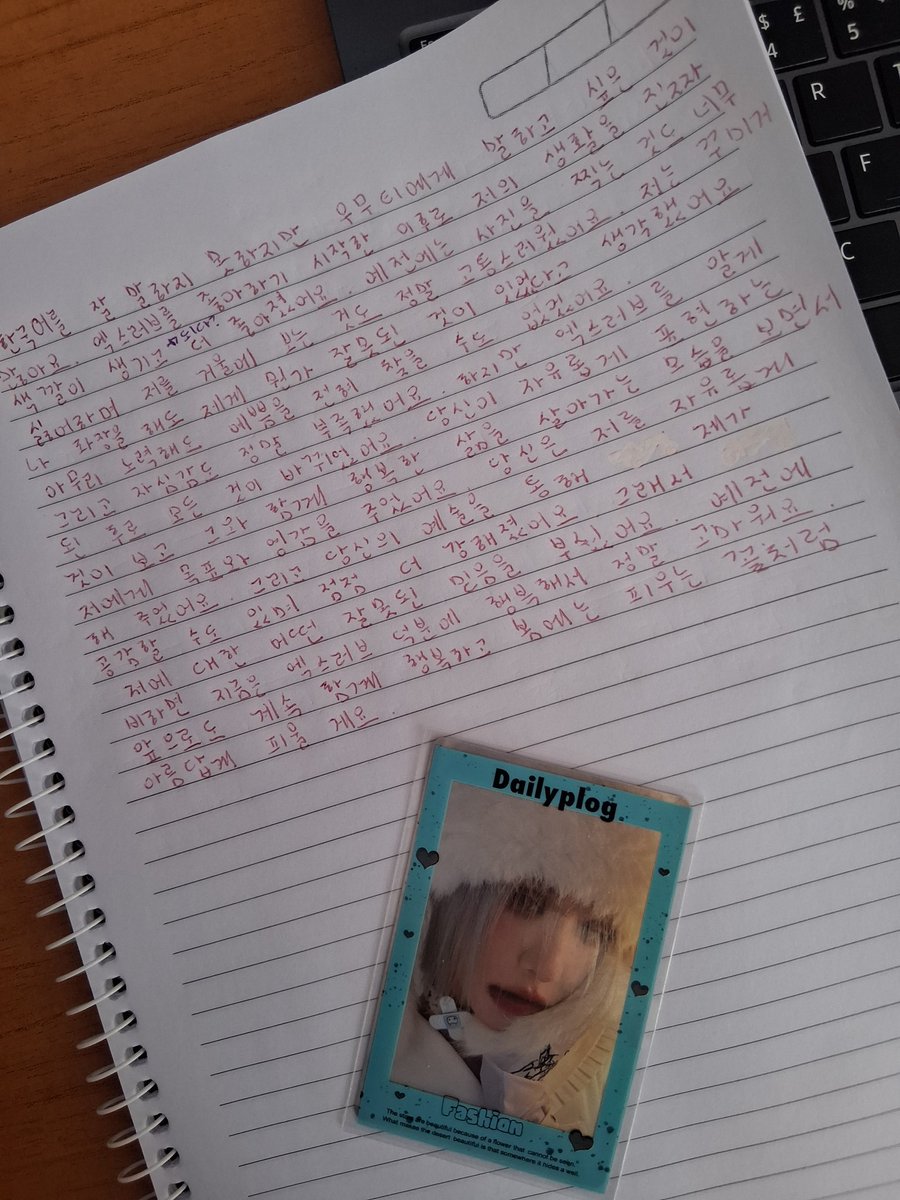 한국어를 잘 말하지 못하지만 우무티에게 말하고 싶은 것이
많아요. 엑스러브를 좋아하기 시작한 이후로 저의 생활을 진짜
되다?
색깔이 생기고 더 좋아졌어요. 예전에는 사진을 찍는 것도 너무
싫어하며 저를 거울에 보는 것도 정말 고통스러웠어요. 저는 꾸미거
나 화장을 해도 제게 뭔가 잘못된 것이 있었다고 생각했어요
아무리 노력해도 예쁨을 전혀 찾을 수도 없었어요.
그리고 자심감도 정말 부족했어요. 하지만 엑스러브를 알게
된 후로 모든 것이 바뀌었어요. 당신이 자유롭게 표현하는
것이 보고 그와 함께 행복한 삶을 살아가는 모습을 보면서
저에게 목표와 영감을 주었어요. 당신은 저를 자유롭게
해 주었어요. 그리고 당신의 예술을 통해 제가
공감할 수도 있며 점점 더 강해졌어요 그래서
저에 대한 어떤 잘못된 믿음을 부쉈어요. 예전에
비하면 지금은 엑스러브 덕분에 행복해서 정말 고마워요.
앞으로도 계속 함께 행복하고 봄에는 피우는 꽃처럼
아름답게 피울 게요.
Dailyplog
Fashion
The stars are beautiful because of a flower that cannot be seen."
What makes the desert beautiful is that somewhere it hides a well.
$ £ %
4 5
R
F
C